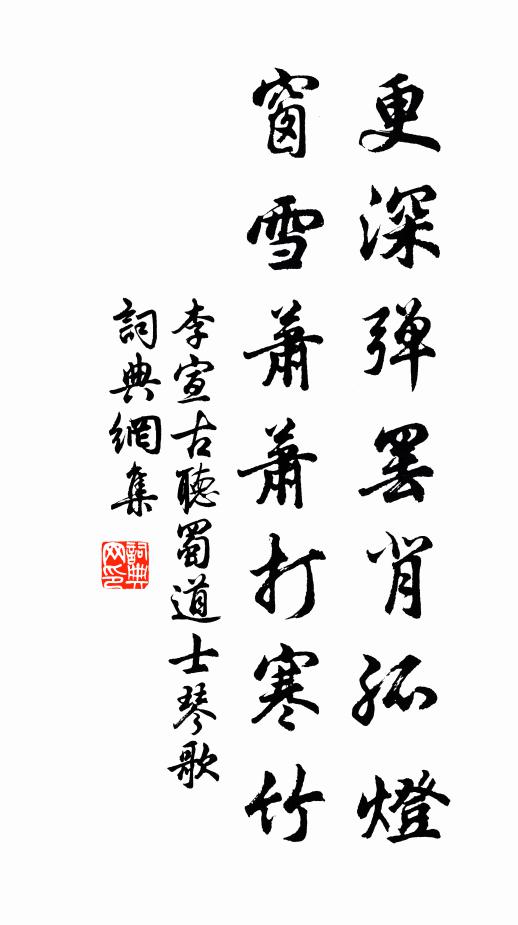 更深弹罢背孤燈
窗雪蕭蕭打寒竹
李宣古聽蜀道士琴歌
詞典網集
詞典网印